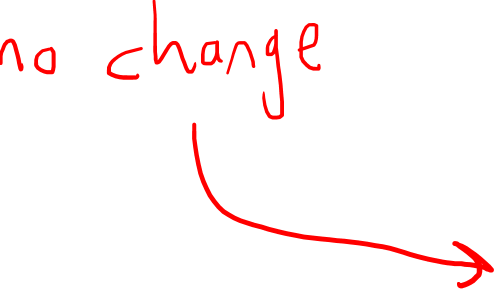 no change